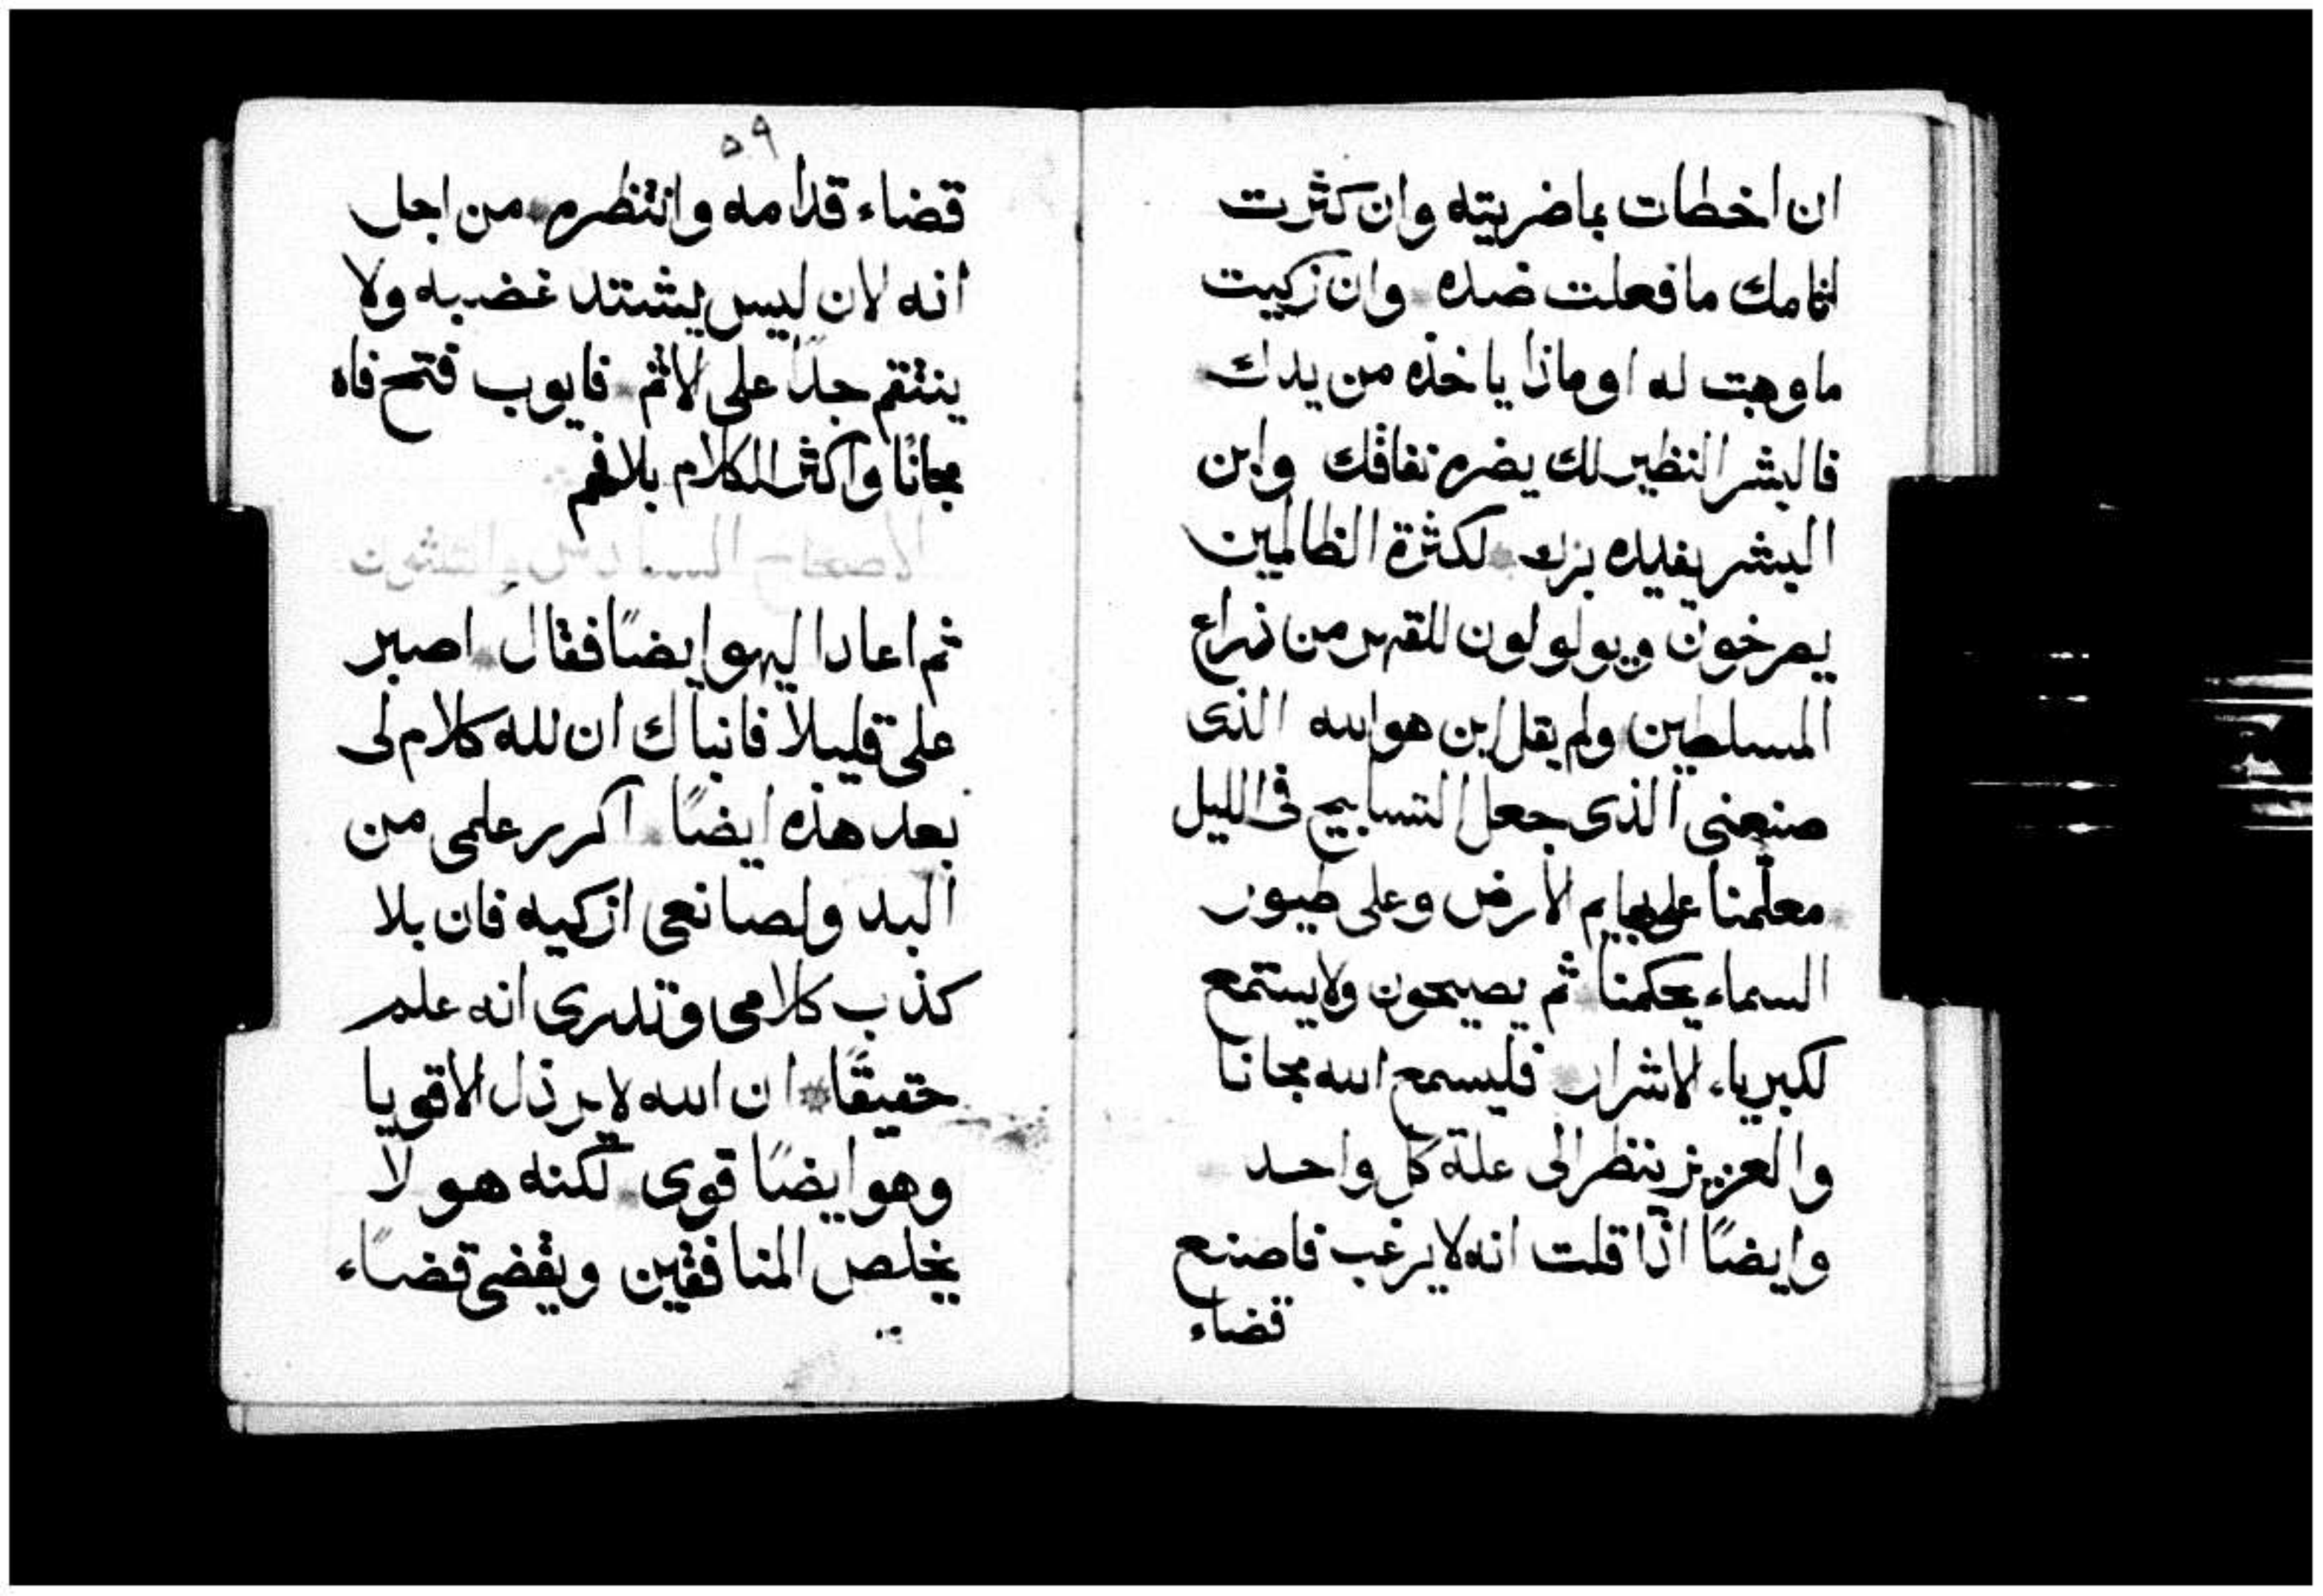 ان اخطات بماضريته وان كثرت
اثامك مافعلت ضده وان زكيت
ماوهبت له اوماذا ياخذه من يدك
فالبشر النظير لك يضره نفاقك وابن
البشر يفيده برك لكثرة الظالمين
يصرخون ويولولون للقهر من ذراع
المسلطين ولم يقل اين هو الله الذى
صنعنى الذى جعل التسابيح فى الليل
معلّمنا على بهايم الأرض وعلى طيور
السماء يحكمنا ثم يصيحون ولايستمع
لكبرياء الاشرار فليسمع الله مجانا
والعزيز ينظر الى علة كل واحد
وايضًا اذا قلت انه لايرغب فاصنع
قضاء
٥٩
قضاء قدامه وانتظره من اجل
انه لان ليس يشتد غضبه ولا
ينتقم جدًا على الاثم فايوب فتح فاه
مجانًا واكثر الكلام بلا فهم
الاصحاح السادس والثلثون
ثم اعاد اليهو ايضًا فقال اصبر
علىّ قليلاً فانباك ان لله كلام لى
بعد هذه ايضًا اكرر علمى من
البد ولصانعى ازكيه فان بلا
كذب كلامى وتدرى انه علم
حقيقًا ان الله لايرذل الاقويا
وهو ايضًا قوى لكنه هو لا
يخلص المنافقين ويقضى قضاء